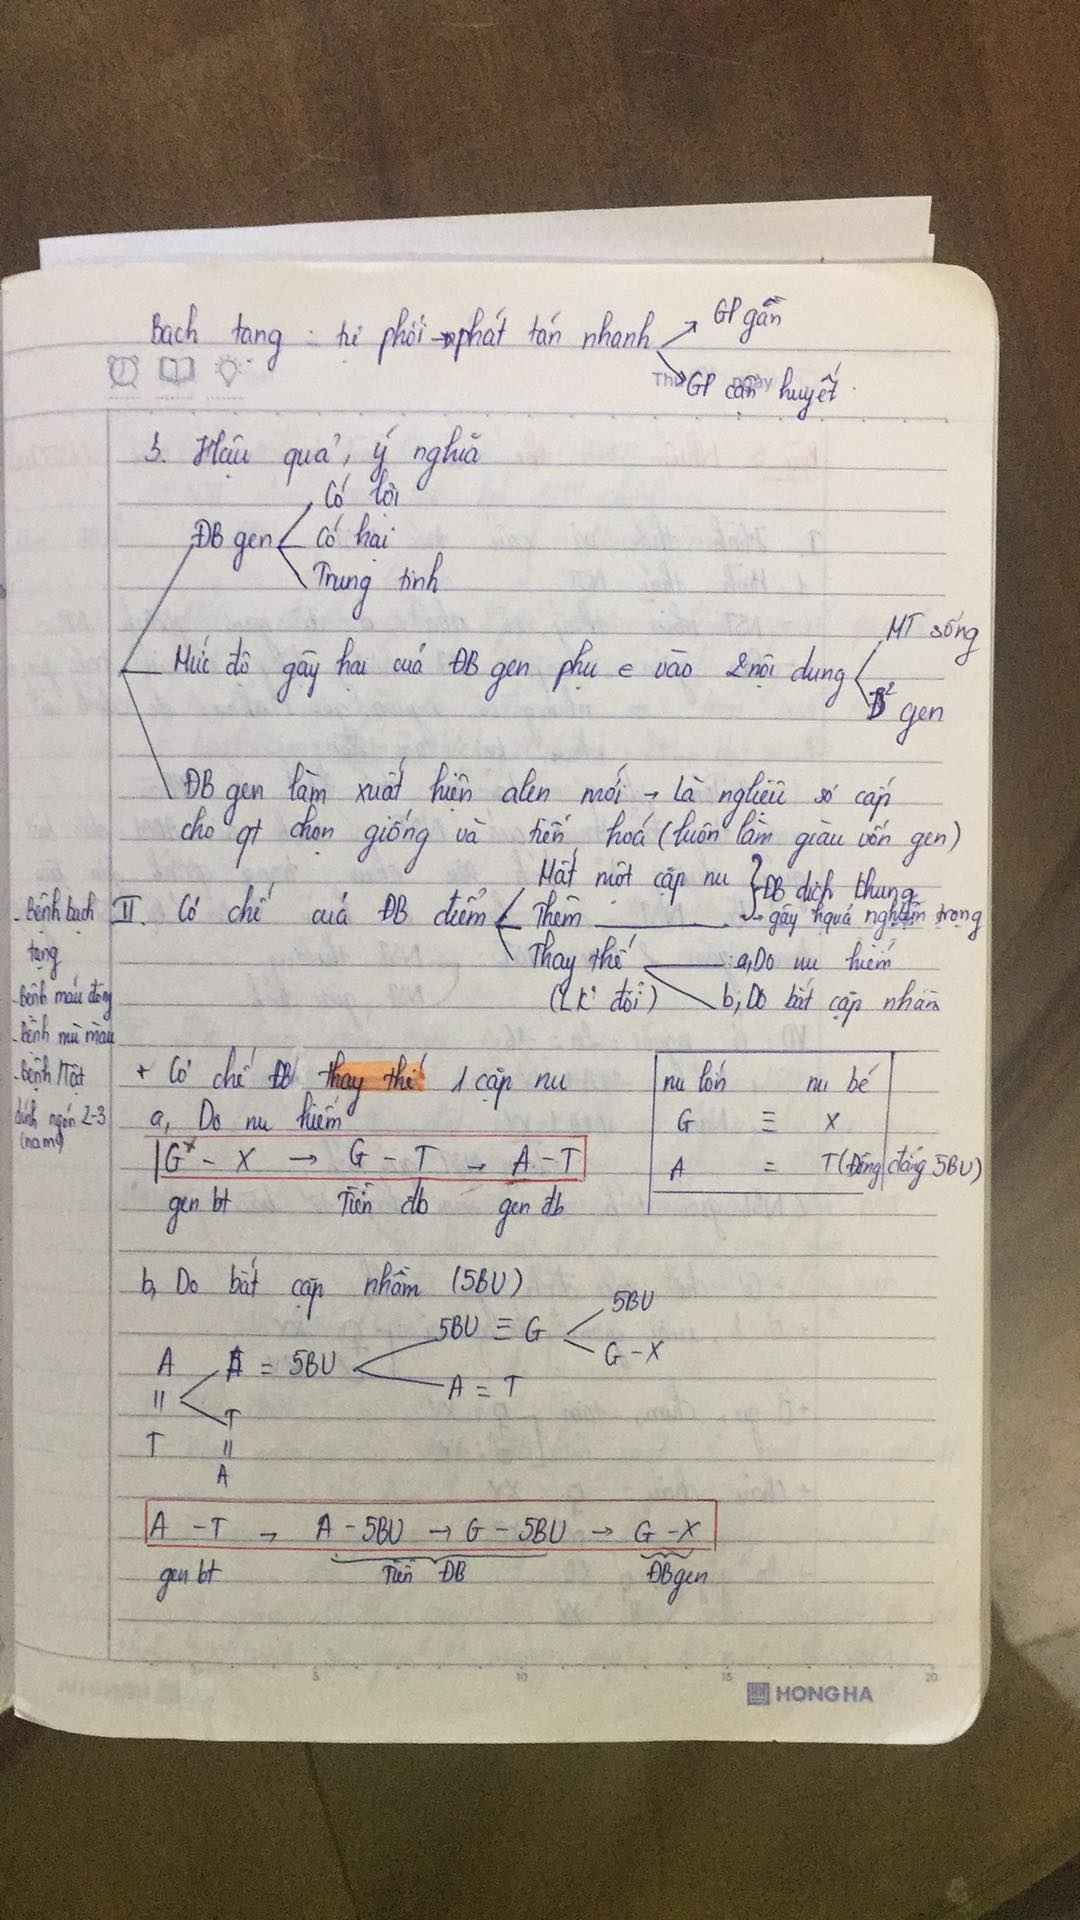 Bạch tạng : tự phối → phát tán nhanh
GP gần
GP cận huyết
Thứ ngày
3. Hậu quả, ý nghĩa
ĐB gen
Có lợi
Có hại
Trung tính
Mức độ gây hại của ĐB gen phụ e vào 2 nội dung
MT sống
gen
ĐB gen làm xuất hiện alen mới → Là nghliệu sơ cấp
cho qt chọn giống và tiến hoá (luôn làm giàu vốn gen)
II. Cơ chế của ĐB điểm
Mất một cặp nu
Thêm
ĐB dịch khung
→ gây hquả nghiêm trọng
Thay thế
(LK đổi)
a, Do nu hiếm
b, Do bắt cặp nhầm
- Bệnh bạch
tạng
- Bệnh máu đông
- Bệnh mù màu
- Bệnh/Tật
dính ngón 2-3
(nam)
+ Cơ chế ĐB thay thế 1 cặp nu
a, Do nu hiếm
G* - X → G - T → A - T
gen bt Tiền đb gen đb
nu lớn nu bé
G ≡ X
A = T (Đồng đẳng 5BU)
b, Do bắt cặp nhầm (5BU)
5BU
5BU ≡ G
G - X
A A = 5BU
A = T
=
T
T =
A
A - T → A - 5BU → G - 5BU → G - X
gen bt Tiền ĐB ĐB gen
5 10 15 20
HONG HA